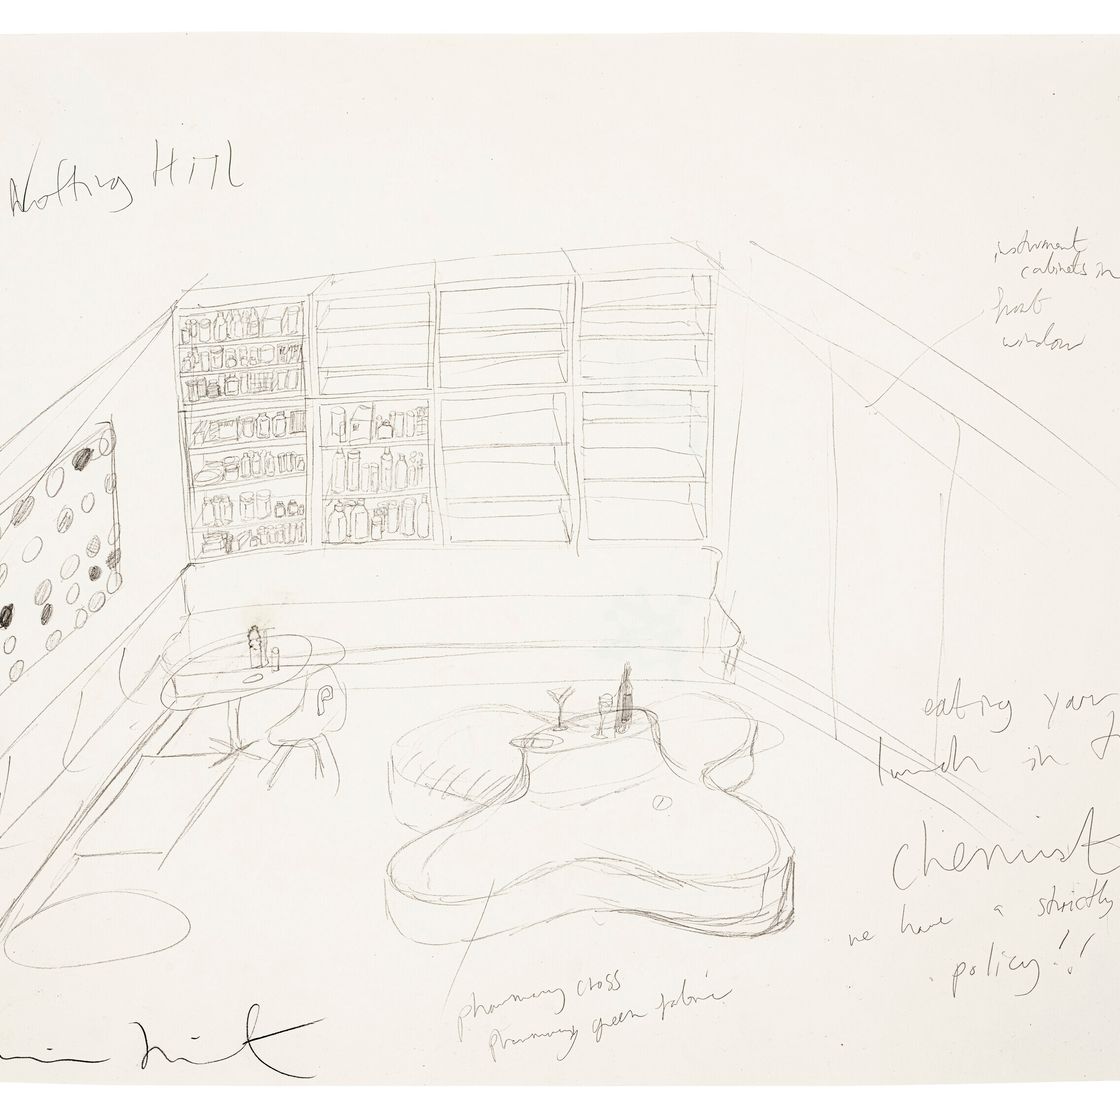 Notting Hill
instrument
cabinets in
front
window
P
eating your
lunch in
chemist
we have a strictly
policy!!
pharmacy cross
pharmacy green fabric
Hirst